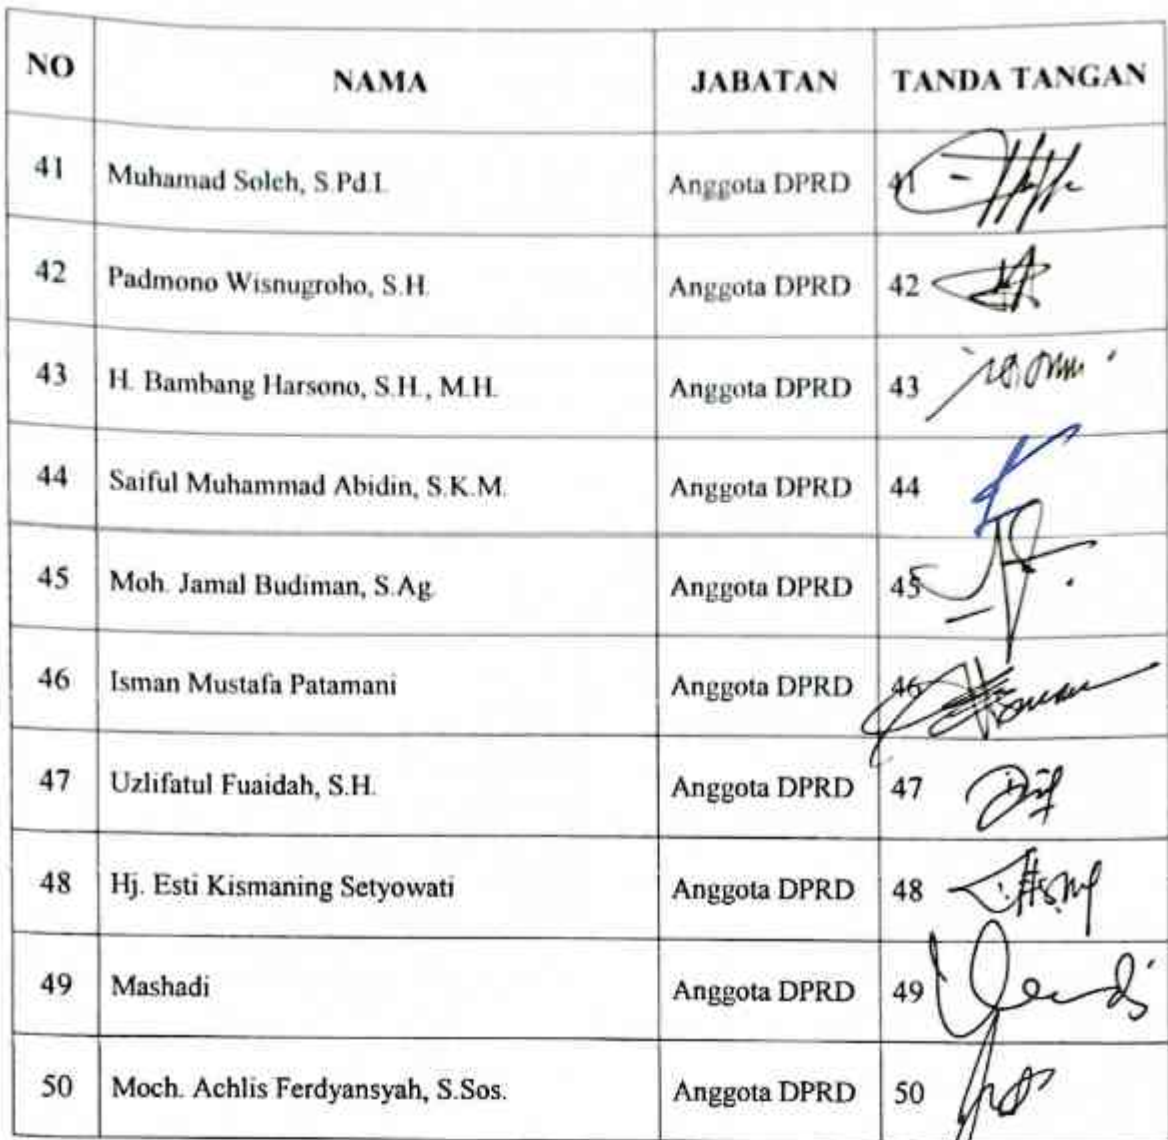 NO NAMA JABATAN TANDA TANGAN
41 Muhamad Soleh, S.Pd.I. Anggota DPRD 41
42 Padmono Wisnugroho, S.H. Anggota DPRD 42
43 H. Bambang Harsono, S.H., M.H. Anggota DPRD 43
44 Saiful Muhammad Abidin, S.K.M. Anggota DPRD 44
45 Moh. Jamal Budiman, S.Ag. Anggota DPRD 45
46 Isman Mustafa Patamani Anggota DPRD 46
47 Uzlifatul Fuaidah, S.H. Anggota DPRD 47
48 Hj. Esti Kismaning Setyowati Anggota DPRD 48
49 Mashadi Anggota DPRD 49
50 Moch. Achlis Ferdyansyah, S.Sos. Anggota DPRD 50